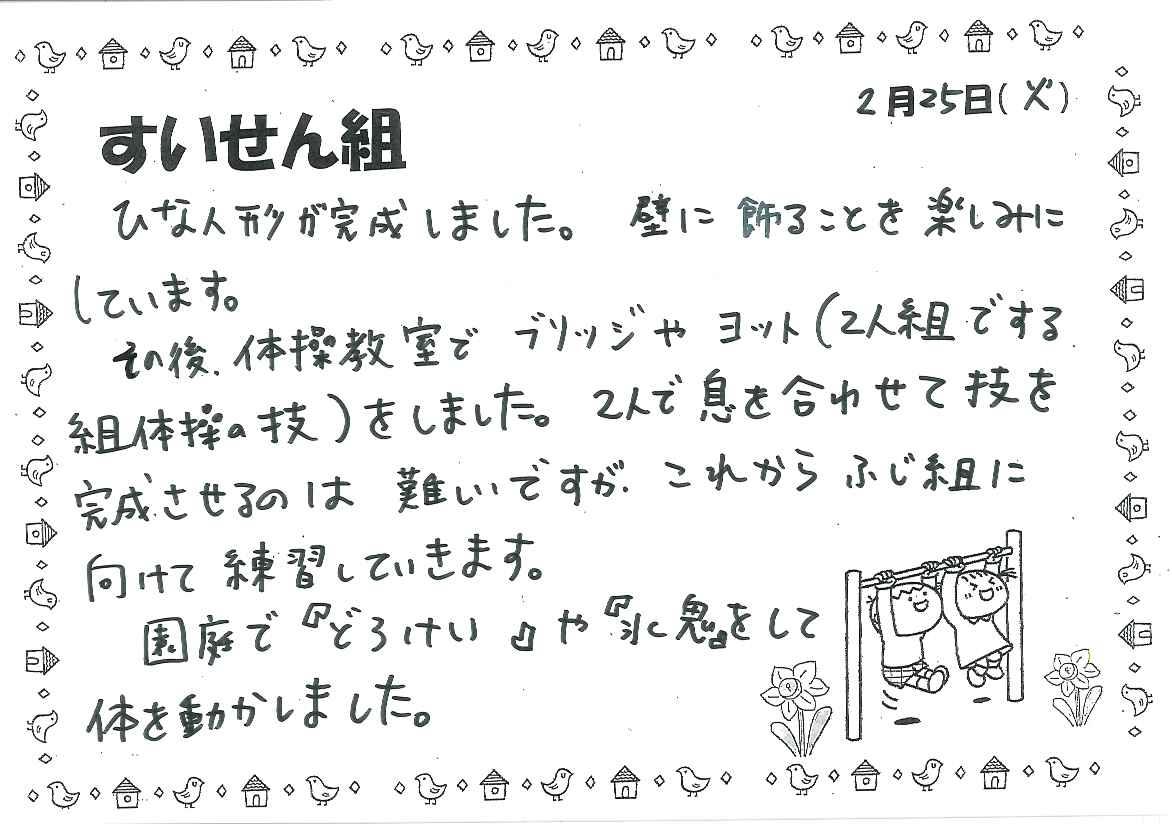 2月25日(火)
すいせん組
ひな人形が完成しました。 壁に飾ることを楽しみに
しています。
その後、体操教室でブリッジやヨット(2人組でする
組体操の技)をしました。2人で息を合わせて技を
完成させるのは難しいですが、これからふじ組に
向けて練習していきます。
園庭で『どろけい』や『氷鬼』をして
体を動かしました。